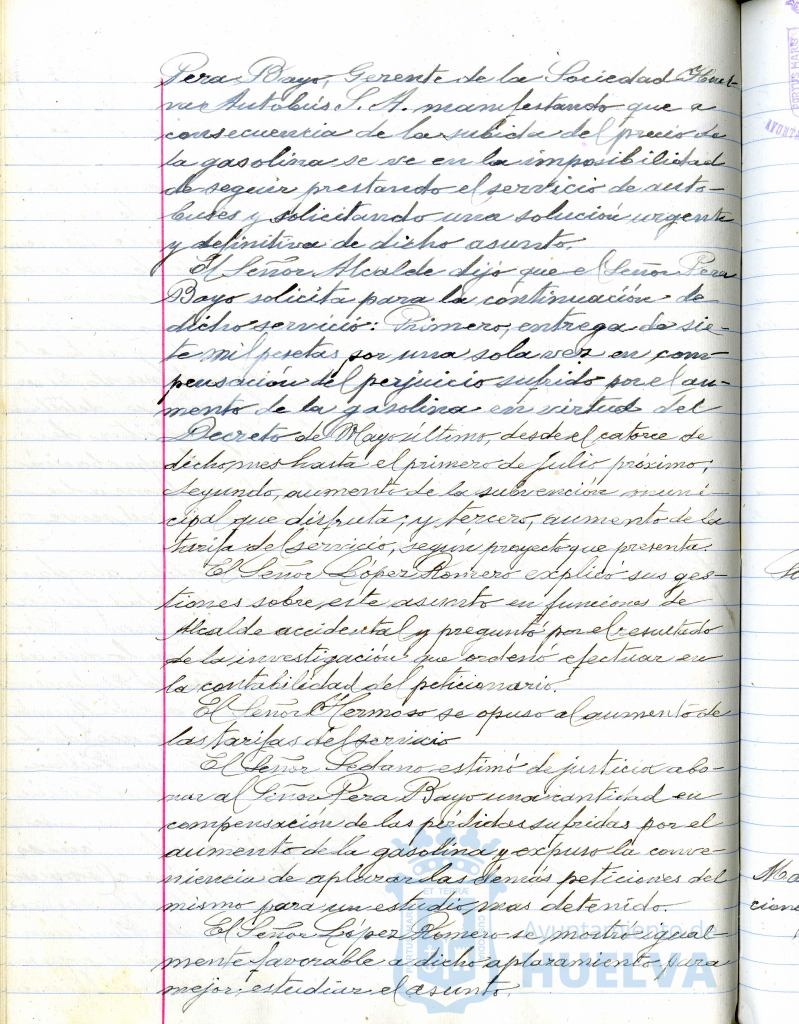 Pera Bayo, Gerente de la Sociedad Huel-
var Autobús S. A. manifestando que a
consecuencia de la subida del precio de
la gasolina se ve en la imposibilidad
de seguir prestando el servicio de auto-
buses y solicitando una solución urgente
y definitiva de dicho asunto.
El Señor Alcalde dijo que el Señor Pera
Bayo solicita para la continuación de
dicho servicio: Primero, entrega de sie-
te mil pesetas por una sola vez en com-
pensación del perjuicio sufrido por el au-
mento de la gasolina en virtud del
Decreto de Mayo último, desde el catorce de
dicho mes hasta el primero de Julio próximo;
segundo, aumento de la subvención muni-
cipal que disfruta; y tercero, aumento de la
tarifa del servicio, según proyecto que presenta.
El Señor López Romero explicó sus ges-
tiones sobre este asunto en funciones de
Alcalde accidental y preguntó por el resultado
de la investigación que ordenó efectuar en
la contabilidad del peticionario.
El Señor Hermoso se opuso al aumento de
las tarifas del servicio
El Señor Sedano estimó de justicia abo-
nar al Señor Pera Bayo una cantidad en
compensación de las pérdidas sufridas por el
aumento de la gasolina y expuso la conve-
niencia de aplazar las demás peticiones del
mismo para un estudio mas detenido
El Señor López Romero se mostró igual-
mente favorable a dicho aplazamiento para
mejor estudiar el asunto.
Ayuntamiento de
HUELVA
PORTUS MARIS
ET TERRAE
CUSTODIA